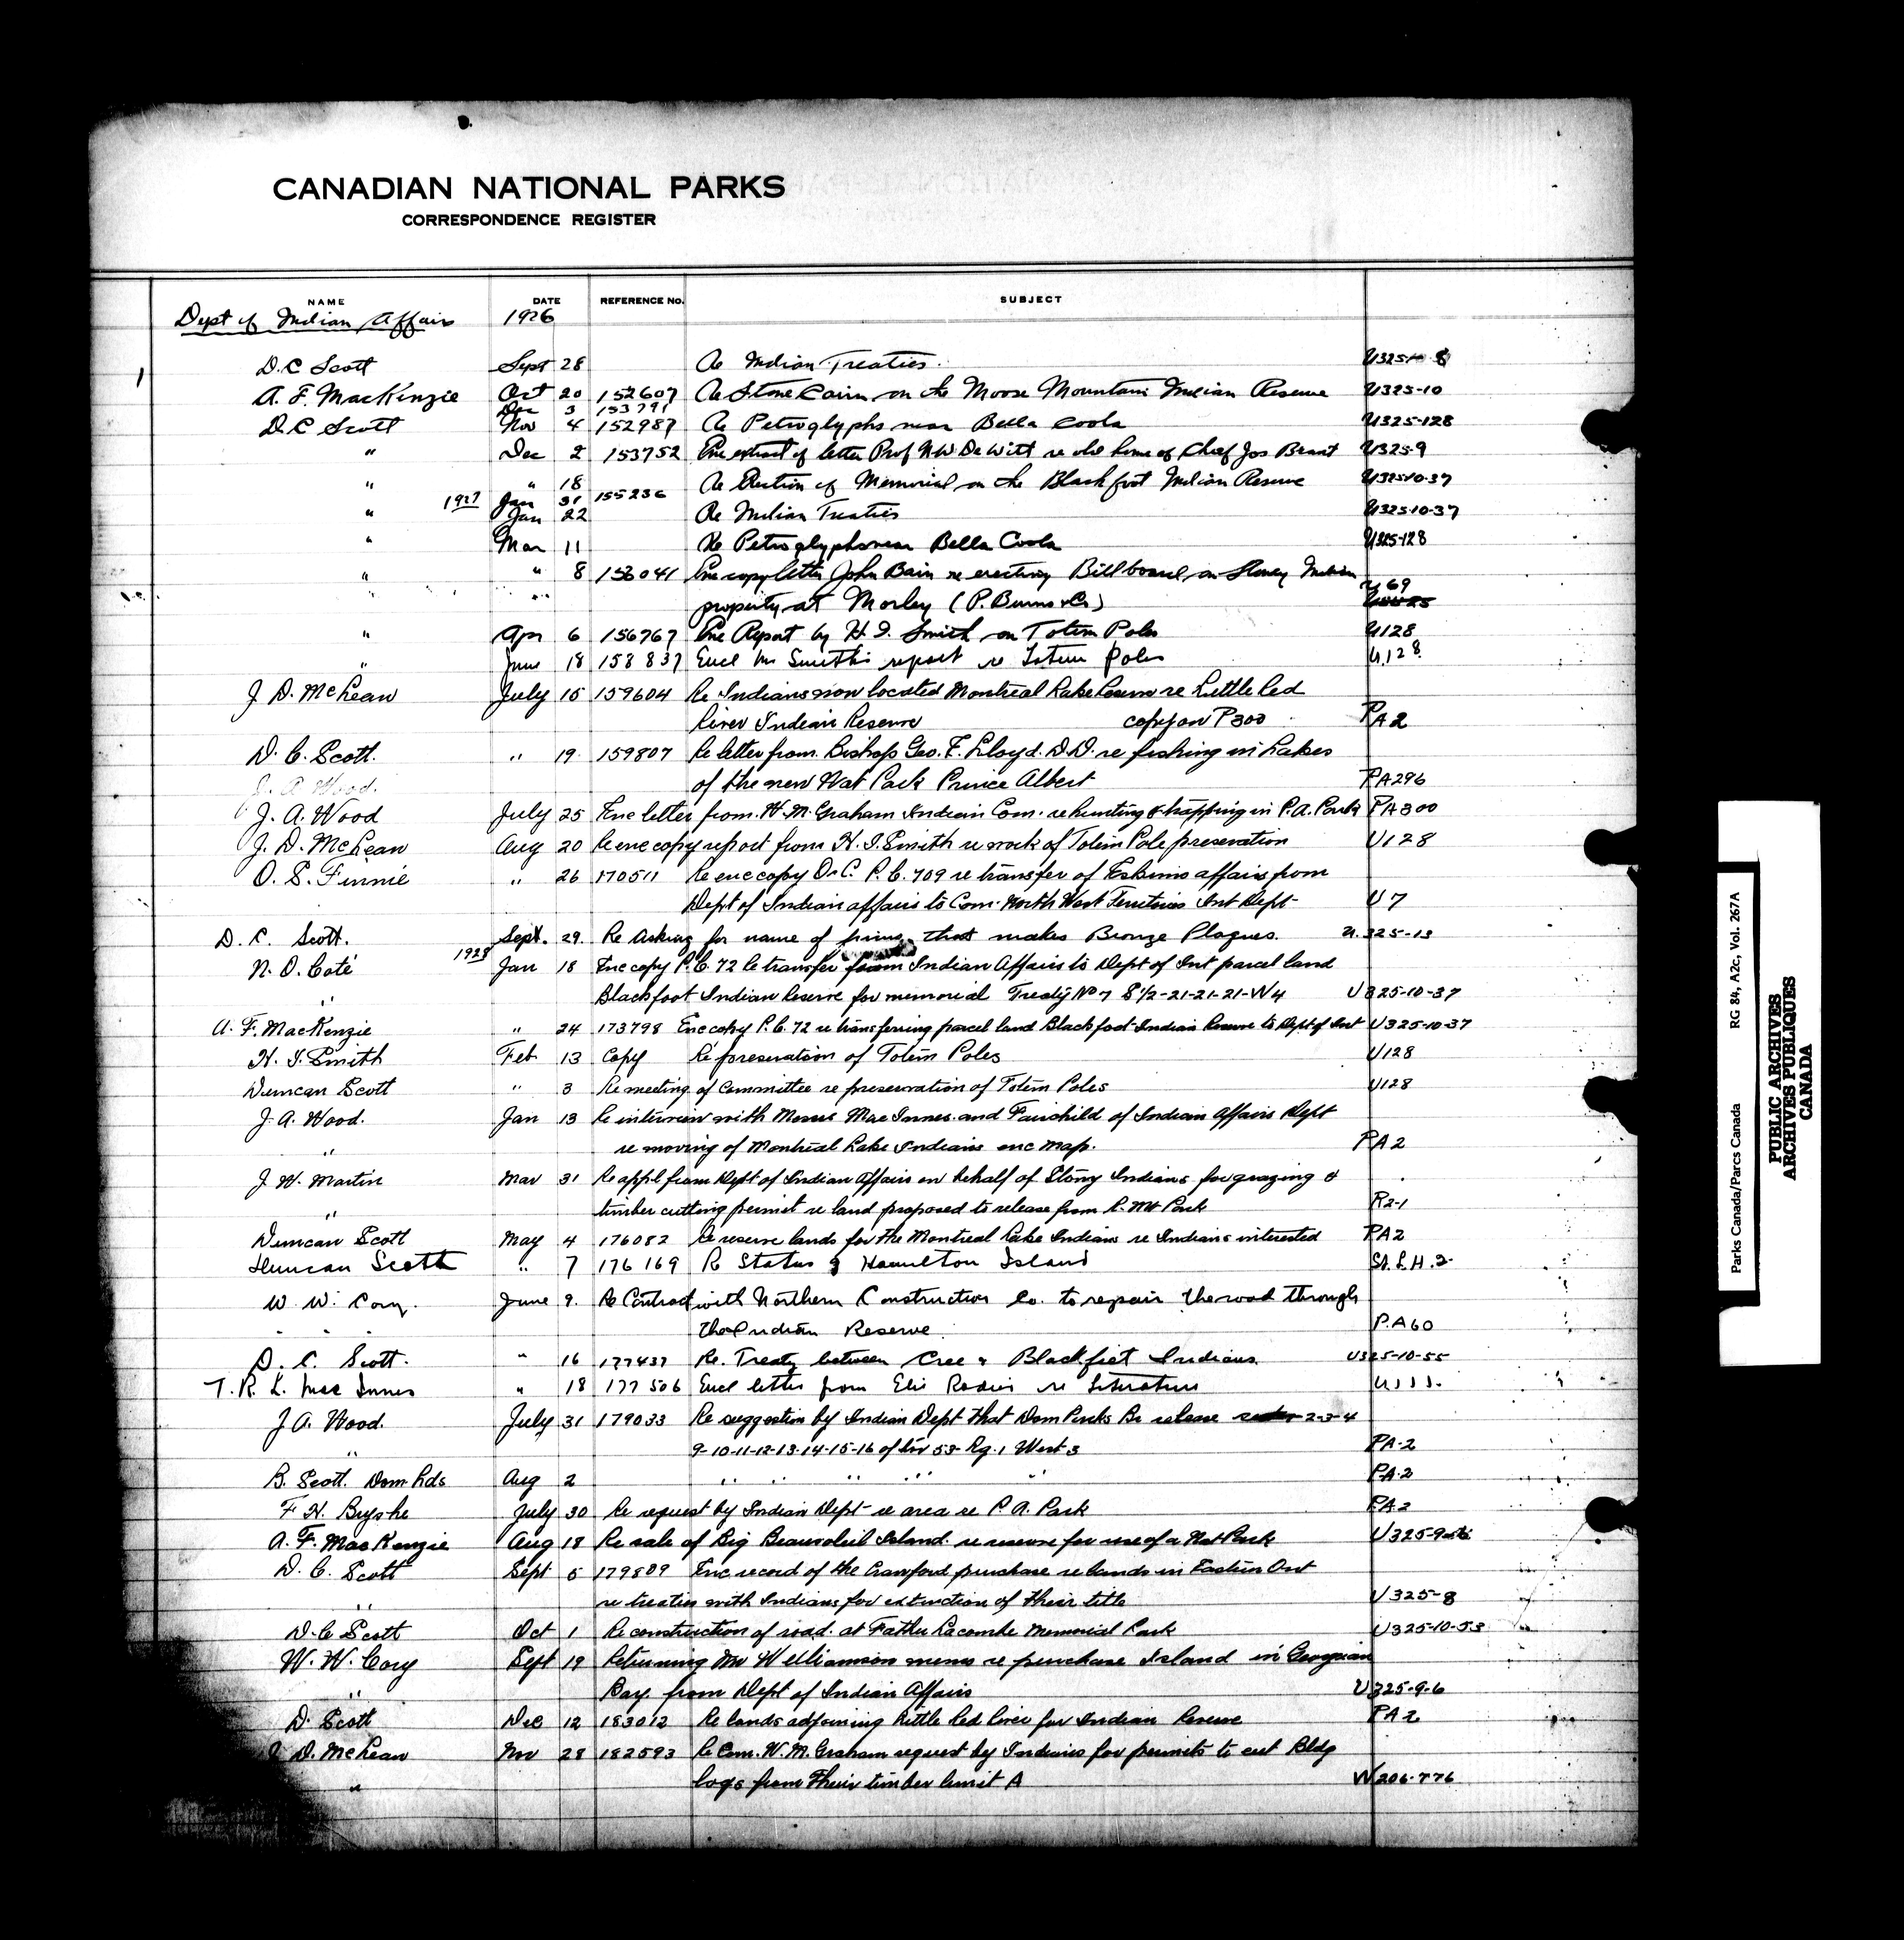 CANADIAN NATIONAL PARKS
CORRESPONDENCE REGISTER
NAME DATE REFERENCE NO. SUBJECT
Dept of Indian Affairs 1926
1 D.C Scott Sept 28 Re Indian Treaties. U325-10 8
A. F. MacKenzie Oct 20 152607 Re Stone Cairn on the Moose Mountain Indian Reserve U325-10
Dec 3 153791
D.C Scott Nov 4 152987 Re Petroglyphs near Bella Coola U325-128
" Dec 2 153752 Enc extract of letter Prof N W De Witt re old home of Chief Jos Brant U325-9
" " 18 Re Erection of Memorial on the Blackfoot Indian Reserve U325-10-37
1927 Jan 31 155236
" Jan 22 Re Indian Treaties U325-10-37
" Mar 11 Re Petroglyphs near Bella Coola U325-128
" " 8 156041 Enc copy letter John Bain re erecting Billboard on Stoney Indian
" " property at Morley (P. Burns & Co) U 69
" Apr 6 156767 Enc Report by H. I. Smith on Totem Poles U128
" June 18 158837 Encl Mr Smith's report re Totem Poles U.128.
J D. McLean July 15 159604 Re Indians now located Montreal Lake Reserve re Little Red
River Indian Reserve copy on P300 PA2
D. C. Scott. " 19. 159807 Re letter from Bishop Geo. F. Lloyd. D.D. re fishing in Lakes
J. A. Wood. of the new Nat Park Prince Albert PA296
J. A. Wood July 25 Enc letter from W. M. Graham Indian Com. re hunting & trapping in P.A. Park PA300
J. D. McLean Aug 20 Re enc copy report from H. I. Smith re work of Totem Pole preservation U128
O. S. Finnie " 26 170511 Re enc copy O.C. P.C. 709 re transfer of Eskimo affairs from
Dept of Indian affairs to Com. North West Territories Int Dept- U7
D. C. Scott. Sept. 29. Re Asking for name of firms that makes Bronze Plaques. U.325-13
N. O. Coté 1928 Jan 18 Enc copy P.C. 72 Re transfer from Indian Affairs to Dept of Int parcel land
" Blackfoot Indian Reserve for memorial Treaty No 7 S½-21-21-21-W4 U325-10-37
A. F. MacKenzie " 24 173798 Enc copy P.C. 72 re transferring parcel land Blackfoot Indian Reserve to Dept of Int U325-10-37
H. I. Smith Feb 13 Copy Re preservation of Totem Poles U128
Duncan Scott " 3 Re meeting of Committee re preservation of Totem Poles U128
J. A. Wood. Jan 13 Re interview with Messrs MacInnes and Fairchild of Indian Affairs Dept
" re moving of Montreal Lake Indians enc map. PA2
J. W. Martin Mar 31 Re appl from Dept of Indian Affairs on behalf of Stony Indians for grazing &
" timber cutting permit re land proposed to release from R. Mt Park R2-1
Duncan Scott May 4 176082 Re reserve lands for the Montreal Lake Indians re Indians interested PA2
Duncan Scott " 7 176169 Re Status of Hamilton Island St.L.H.2.
W. W. Cory. June 9. Re Contract with Northern Construction Co. to repair the road through
" " " the Indian Reserve. P.A60
D. C. Scott. " 16 177437 Re. Treaty between Cree & Blackfeet Indians. U325-10-55
T. R. L. MacInnes " 18 177506 Encl letter from re Literature U111.
J A. Wood. July 31 179033 Re suggestion by Indian Dept that Dom Parks Br release 2-3-4
" 9-10-11-12-13-14-15-16 of 53 Rg. 1 West 3 PA-2
B. Scott. Dom Lds Aug 2 " " " " " PA-2
F H. Byshe July 30 Re request by Indian Dept re area re P. A. Park PA2
A. F. MacKenzie Aug 18 Re sale of Big Beausoleil Island. re reserve for use of a Nat Park U325-9-6
D. C. Scott Sept 5 179809 Enc record of the Crawford purchase re lands in Eastern Ont
" re treaties with Indians for extinction of their title U325-8
D. C Scott Oct 1 Re construction of road. at Father Lacombe Memorial Park U325-10-53
W. W. Cory Sept 19 Returning Mr Williamson memo re purchase Island in Georgian
" Bay. from Dept of Indian Affairs U325-9-6
D. Scott Dec 12 183012 Re lands adjoining Little Red River for Indian Reserve PA2
J. D. McLean Nov 28 182593 Re Com. W. M. Graham request by Indians for permits to cut Bldg
" logs from their timber limit A W206-776
Parks Canada/Parcs Canada RG 84, A2c, Vol. 267A
PUBLIC ARCHIVES
ARCHIVES PUBLIQUES
CANADA